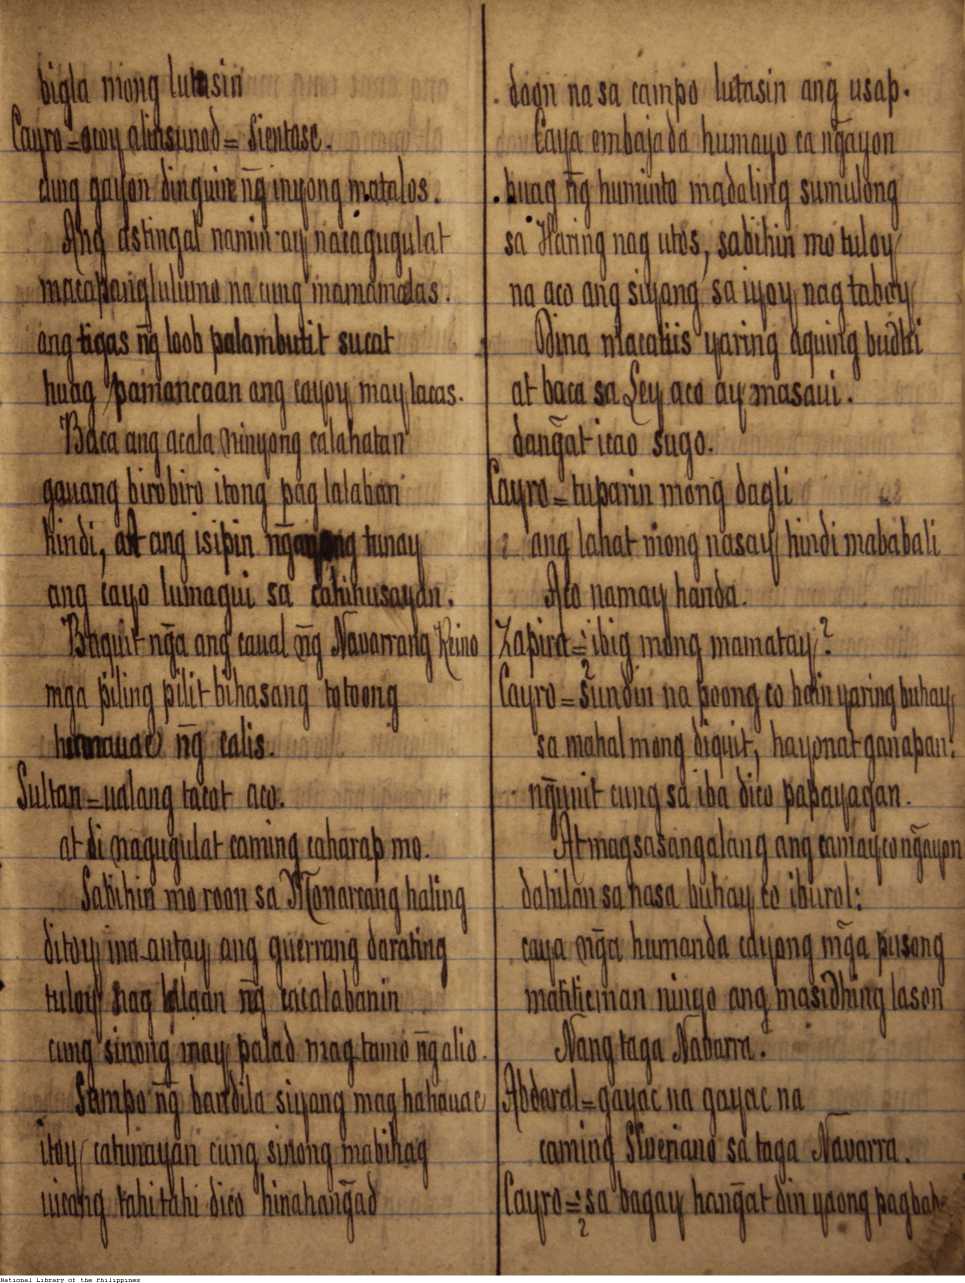 bigla mong lutasin
Cayro = acoy alinsunod = Sientase.
cung gayon dinguin ñg inyong matalos.
Ang astingal namin ay nacagugulat
macapanglulumo na cung mamamalas.
ang tigas ñg loob palambutit sucat
huag pamancaan ang cayoy may lacas.
Baca ang acala ninyong calahatan
gauang birobiro itong pag lalaban
hindi, at ang isipin tunay
ang cayo lumagui sa cahihusayan.
Baquit n̄ga ang caual n̄g Navarrang Reino
mga piling pilit bihasang totoong
humauac n̄g calis.
Sultan = ualang tacot aco.
at di nagugulat caming caharap mo.
Sabihin mo roon sa Monarcang haling
ditoy ina-antay ang guerrang darating
tuloy pag lalaan n̄g cacalabanin
cung sinong may palad mag tamo n̄g alio.
Sampo n̄g bandila siyang mag hahauac
itoy catunayan cung sinong mabihag
uicang tahi tahi dico hinahang̃ad
doon na sa campo lutasin ang usap.
Caya embajada humayo ca ng̃ayon
huag n̄g huminto madaling sumulong
sa Haring nag utos, sabihin mo tuloy
na aco ang siyang sa iyoy nag taboy
Odina macatiis yaring aquing budhi
at baca sa Ley aco ay masaui.
dang̃at icao sugo.
Cayro = tuparin mong dagli
ang lahat mong nasay hindi mababali
Aco namay handa.
Zapira = ibig mong mamatay?
Cayro = Sundin na poong co hain yaring buhay,
sa mahal mong diquit, hayonat ganapan.
n̄gunit cung sa iba dico papayagan.
At magsasangalang ang camay co ng̃ayon
dahilan sa nasa buhay co iburol:
caya mg̃a humanda cayong mg̃a pusong
matitieman ninyo ang masidhing lason
Nang taga Nabarra.
Abdaral = gayac na gayac na
caming Sirveriano sa taga Navarra.
Cayro = sa bagay hang̃at din yaong pagbab-
National Library of the Philippines